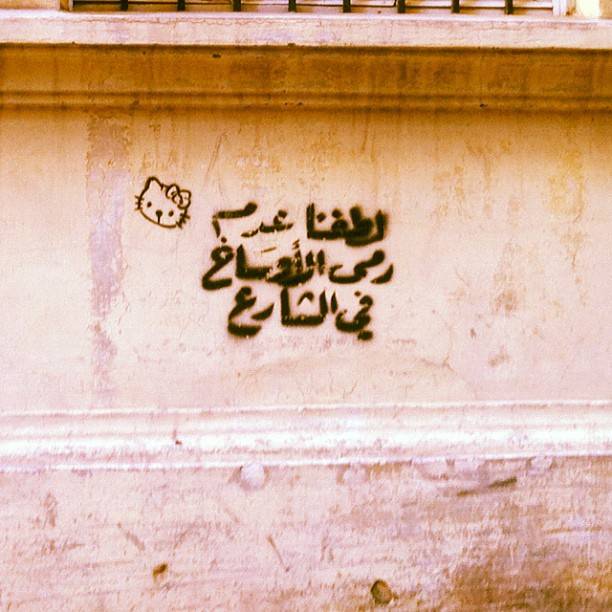 لطفنا عدم
رمى الأوساخ
في الشارع